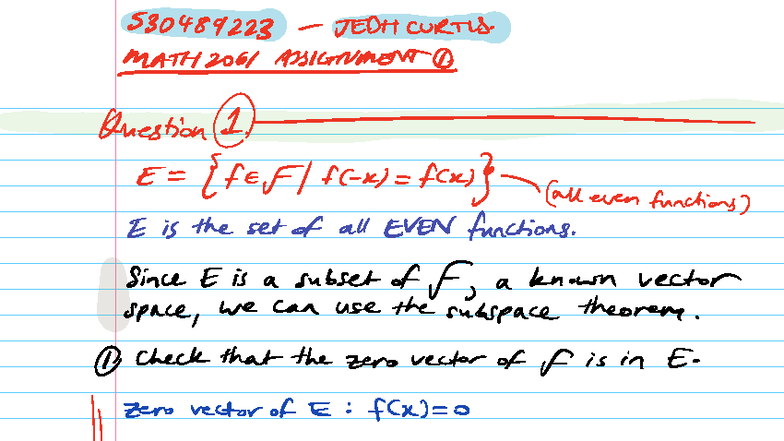 530489223 — JEDH CURTIS.
MATH2061 ASSIGNMENT ①
Question 1.
E = { f ∈ F | f(-x) = f(x) } (all even functions)
E is the set of all EVEN functions.
Since E is a subset of F, a known vector
space, we can use the subspace theorem.
① Check that the zero vector of F is in E.
zero vector of E : f(x)=0